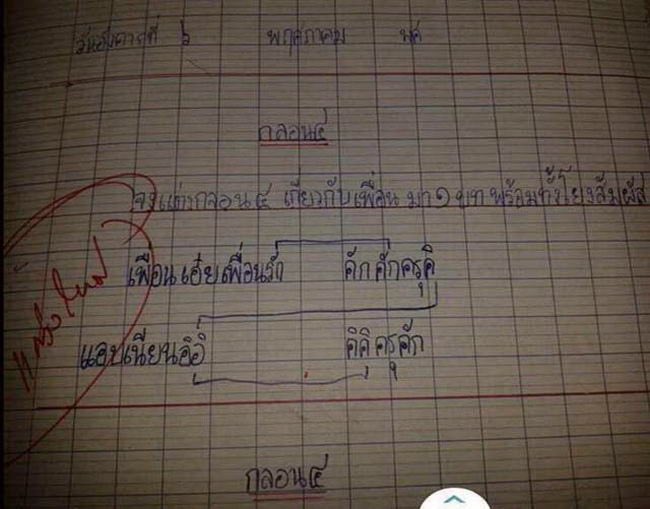 วันอังคารที่ ๖ พฤษภาคม พศ
กลอน๔
จงแต่งกลอน๔ เกี่ยวกับเพื่อน มา ๑ บท พร้อมทั้งโยงสัมผัส
เพื่อนเอ๋ยเพื่อนรัก คักคักครุคิ
แอบเนียนอิอิ คิคิครุคัก
แต่งใหม่
กลอน๔